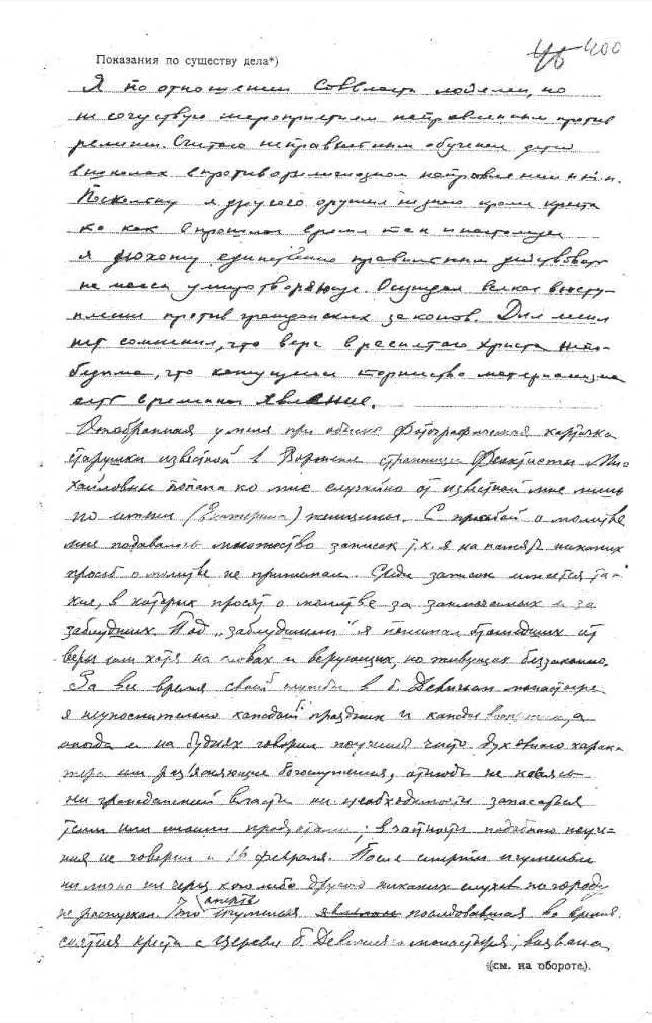 Показания по существу дела*)
400
Я по отношению Соввласти лоялен, но
не сочувствую мероприятиям направленным против
религии. Считаю неправильным обучение детей
в школах в противорелигиозном направлении и т.п.
Поскольку я другого оружия не знаю кроме креста
как в прошлом время так и настоящем
я единственно правильным действовать
на массы умиротворяюще. Осуждая всякое высту-
пление против гражданских законов. Для меня
нет сомнения, что вера в распятого Христа непо-
бедима, что кажущееся торжество материализма
есть временное явление.
Отобранная у меня при обыске фотографическая карточка
старушки известной в Воронеже странницы Феоктисты Ми-
хайловны попала ко мне случайно от известной мне лишь
по имени (Екатерина) женщины. С просьбой о молитве
мне подавалось множество записок т.к. я на память никаких
просьб о молитве не принимал. Среди записок имеются та-
кие, в которых просят о молитве за заключенных и за
заблудших. Под „заблудшими“ я понимал отошедших от
веры или хотя на словах и верующих, но живущих беззаконно.
За все время своей службы в б. Девичьем монастыре
я неукоснительно каждый праздник и каждое а
иногда и на буднях говорил поучения чисто духовного харак-
тера или раз'ясняющие богослужения, отнюдь не касаясь
ни гражданской власти ни необходимости запасаться
теми или иными продуктами; в частности подобного поуче-
ния не говорил и 16 февраля. После смерти игумении
ни лично ни через кого либо другого никаких слухов по городу
не распускал. Что смерть игумении последовавшая во время
снятия креста с церкви б. Девичьего монастыря, вызвана
(см. на обороте).